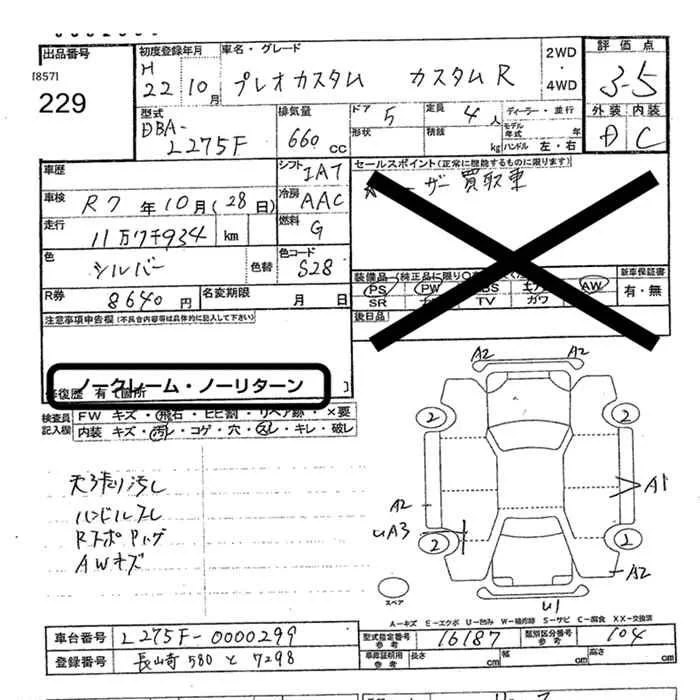 出品番号
[857]
229
初度登録年月
H
22 10月
車名・グレード
プレオカスタム カスタムR
2WD
・
4WD
評価点
3-5
外装 内装
C
型式
DBA-
L275F
排気量
660 CC
ドア 5
形状
定員 4人
積載 kg
ディーラー・並行
モデル年式 年
ハンドル 左・右
車歴
シフト IAT
車検 R7年10月(28日)
冷房 AAC
走行 11万7千934 km
燃料 G
色 シルバー 色替
色コード S28
R券 8640円
名変期限 月 日
セールスポイント(正常に機能するものに限ります)
ーザー買取車
装備品(純正品に限り
PS PW AW
SR TV
後日品
新車保証書
有・無
注意事項申告欄(不具合内容等は具体的に記入して下さい)
ノークレーム・ノーリターン
修復歴 有 箇所 ]
検査員記入欄
FW キズ・飛石・ヒビ割・リペア跡・×要
内装 キズ・汚レ・コゲ・穴・スレ・キレ・破レ
天張り汚し
ハンドルスレ
AWキズ
A2 A2
2 2
A1
A2
UA3
2 2
A2
U1
スペア
A-キズ E-エクボ U-凹み W-補修跡 S-サビ C-腐食 XX-交換済
車台番号 L275F-0000299
型式指定番号参考 16187
類別区分番号参考 104
登録番号 580 と 7298
車庫証明用参考 長さ cm 幅 cm 高さ cm